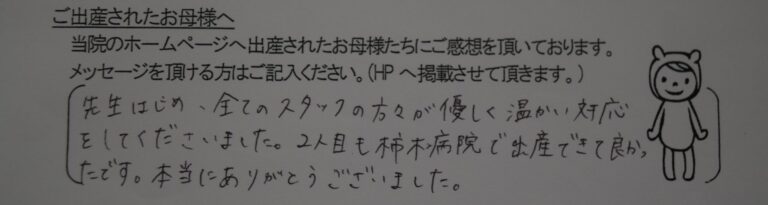 ご出産されたお母様へ
当院のホームページへ出産されたお母様たちにご感想を頂いております。
メッセージを頂ける方はご記入ください。(HPへ掲載させて頂きます。)
先生はじめ、全てのスタッフの方々が優しく温かい対応
をしてくださいました。2人目も柿木病院で出産できて良かっ
たです。本当にありがとうございました。